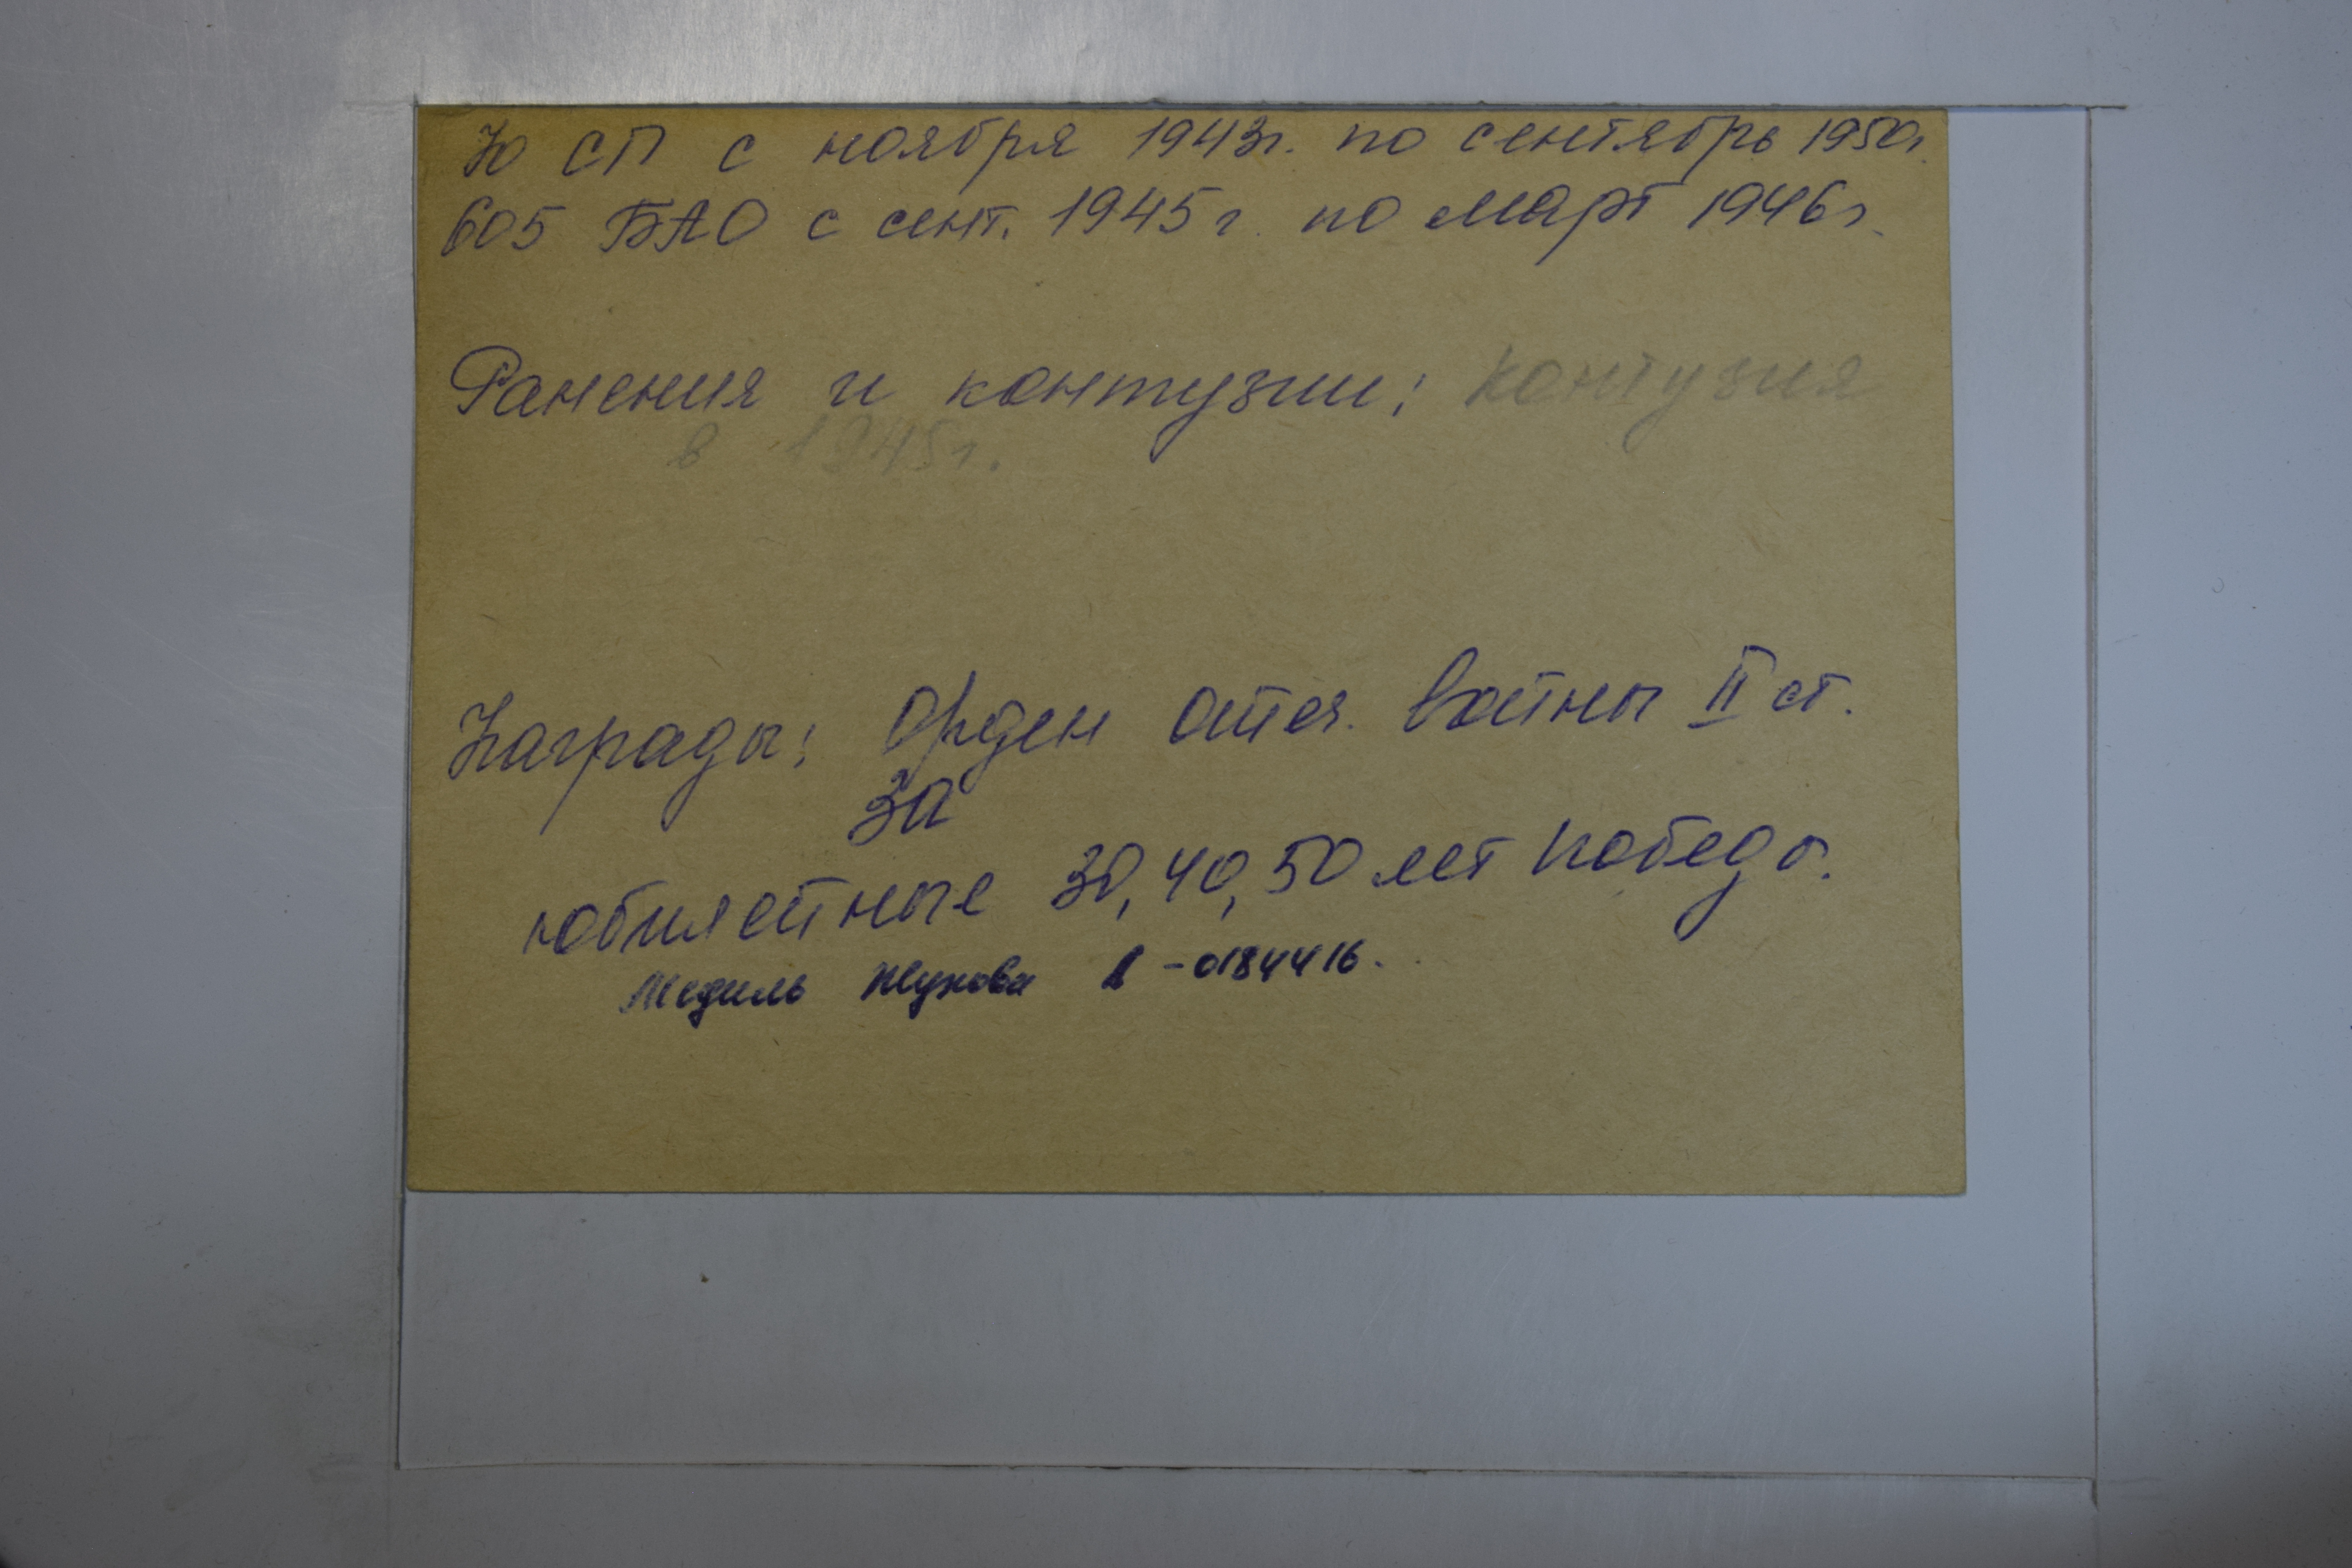 СП с ноября 1943г. по сентябрь 1950г.
605 БАО с сент. 1945г. по март 1946г.
Ранения и контузии: контузия
в 1945г.
Награды: Орден отеч. войны II ст.
За
юбилейные 30, 40, 50 лет победы.
Медаль Жукова -0184416.